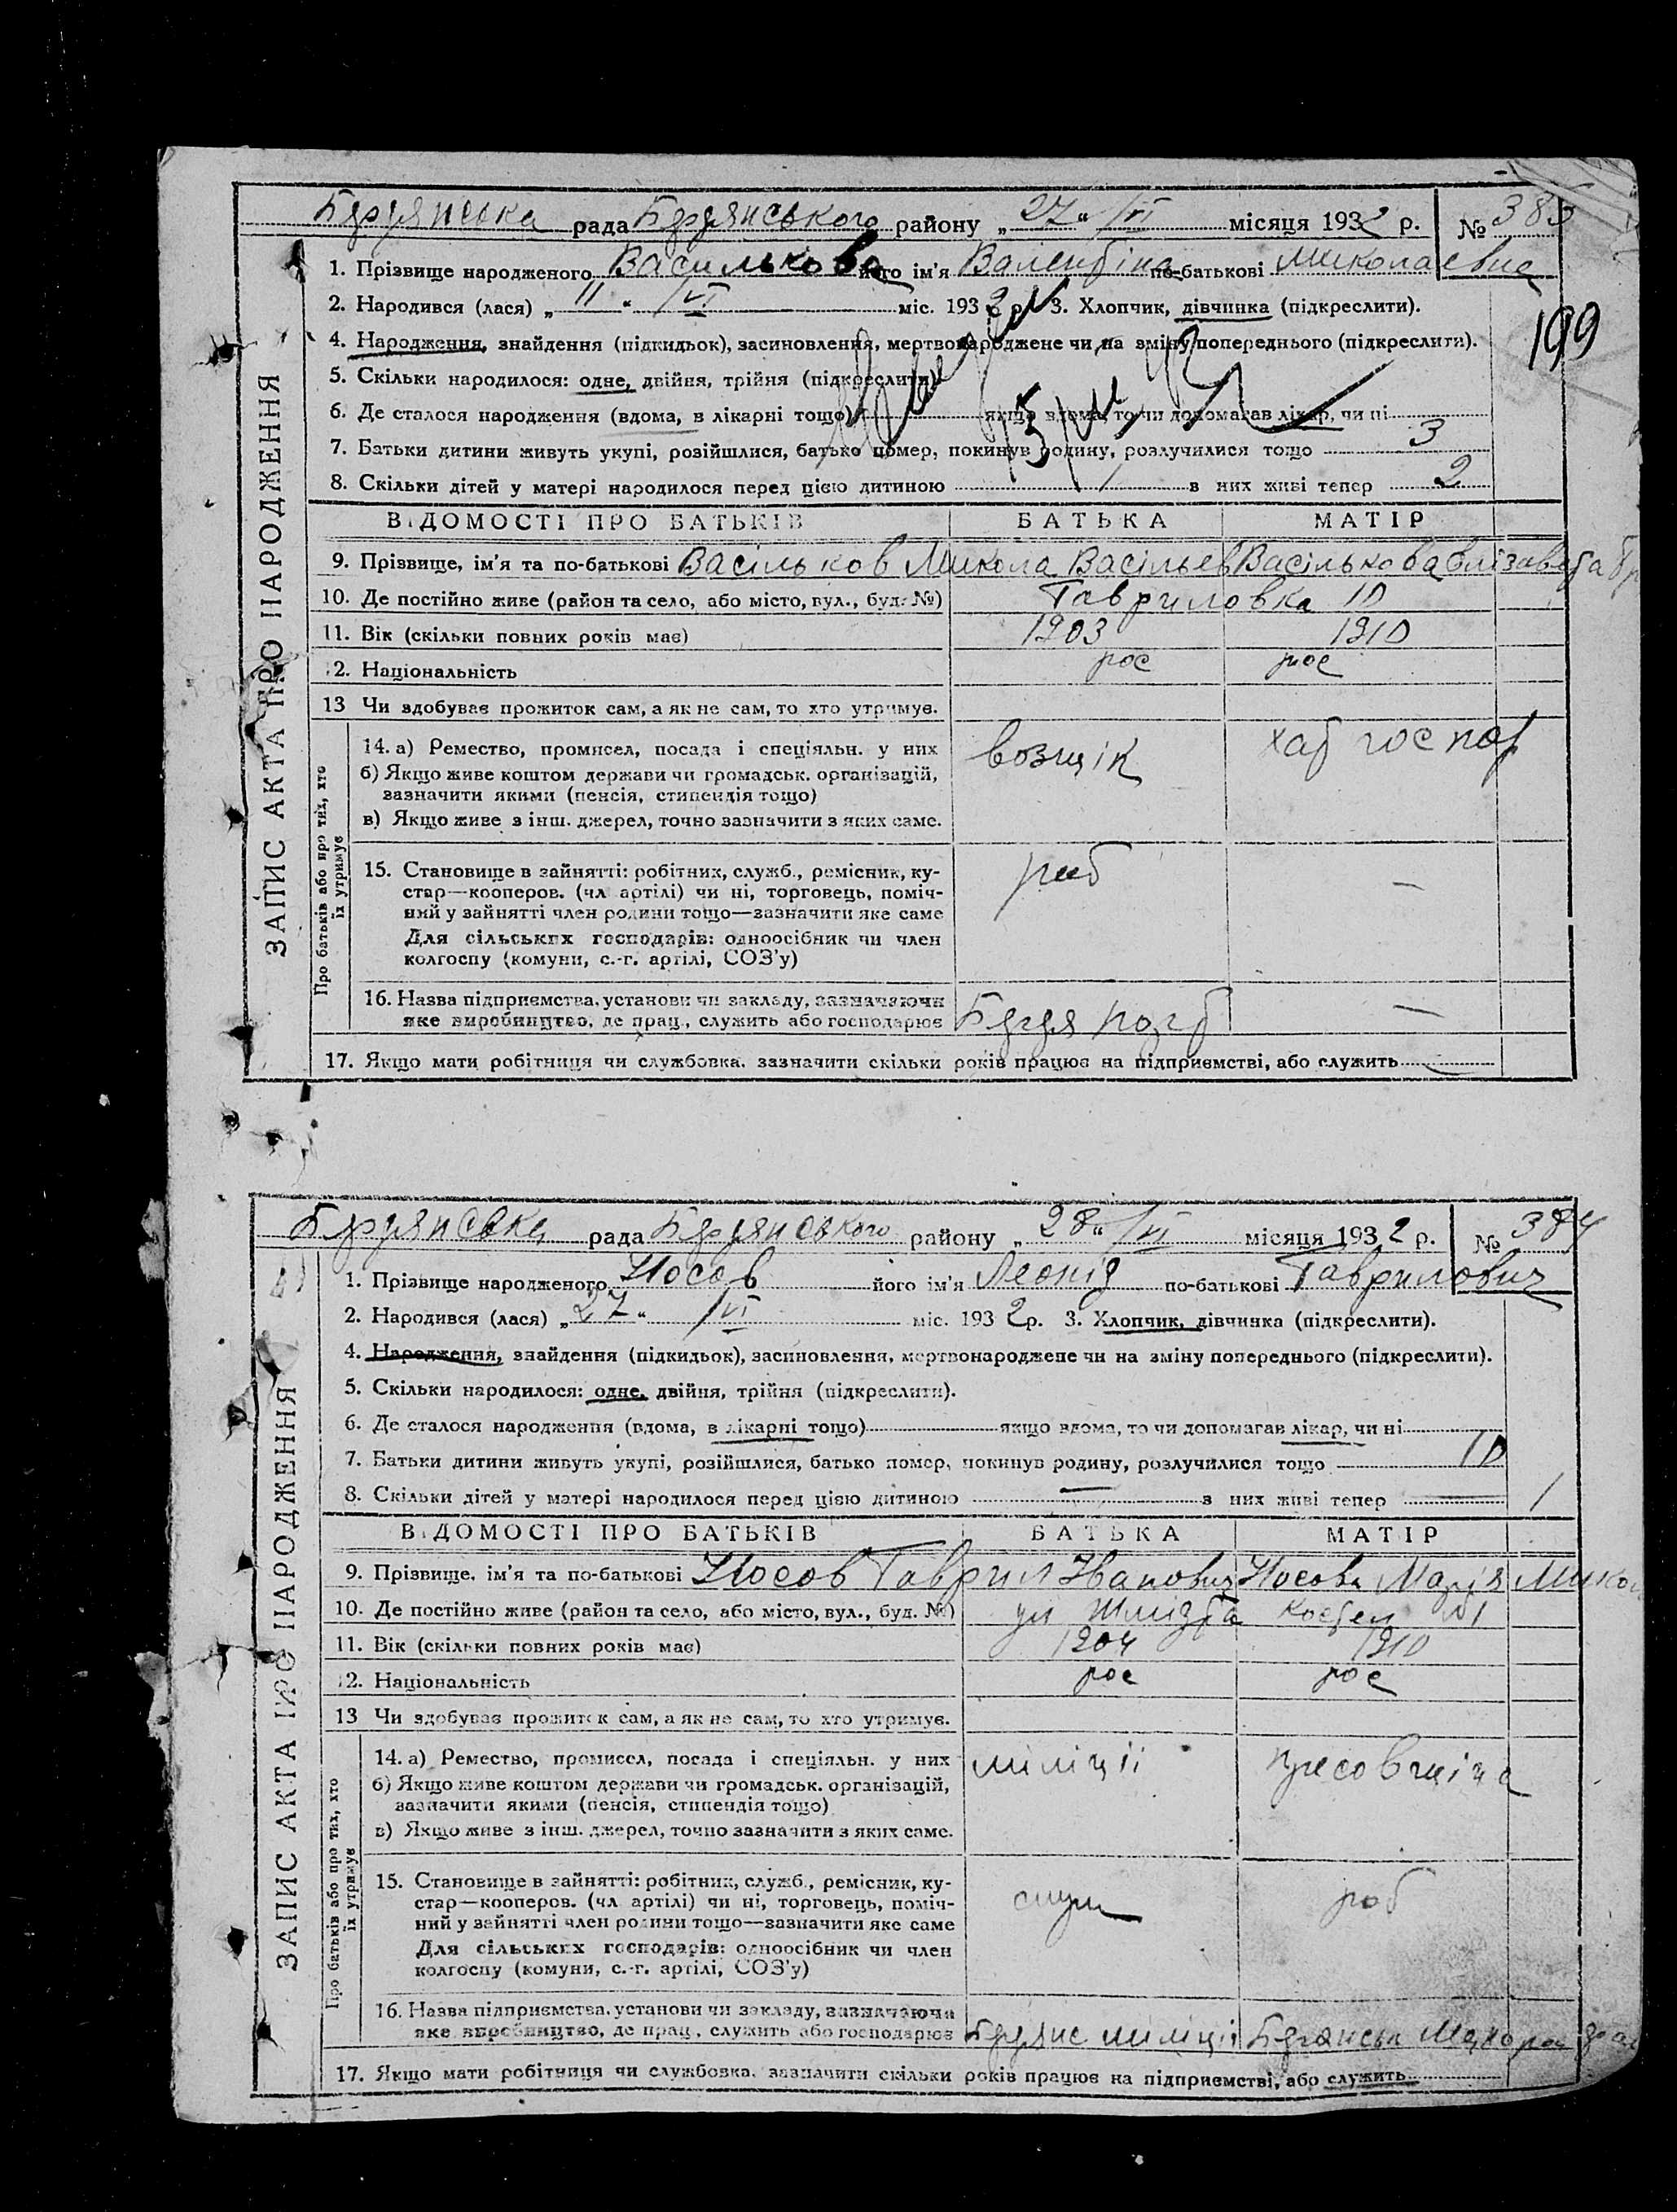 Бердянська рада Бердянського району „27“ /VI місяця 1932 р. № 383
1. Прізвище народженого Василькова його ім'я Валентіна по-батькові Миколаєвна
2. Народився (лася) „11“ /VI міс. 1932 р. 3. Хлопчик, дівчинка (підкреслити).
199
4. Народження, знайдення (підкидьок), засиновлення, мертвонароджене чи на зміну попереднього (підкреслити).
5. Скільки народилося: одне, двійня, трійня (підкреслити)
6. Де сталося народження (вдома, в лікарні тощо) якщо вдома, то чи допомагав лікар, чи ні
7. Батьки дитини живуть укупі, розійшлися, батько помер, покинув родину, розлучилися тощо 3
8. Скільки дітей у матері народилося перед цією дитиною в них живі тепер 2
ВІДОМОСТІ ПРО БАТЬКІВ БАТЬКА МАТІР
9. Прізвище, ім'я та по-батькові Васільков Микола Васільев Василькова Елізавета
10. Де постійно живе (район та село, або місто, вул., буд. №) Гавриловка 10
11. Вік (скільки повних років має) 1903 1910
12. Національність рос рос
13 Чи здобуває прожиток сам, а як не сам, то хто утримує.
14. а) Ремество, промисел, посада і спеціяльн. у них возщік хат госпор
б) Якщо живе коштом держави чи громадськ. організацій,
зазначити якими (пенсія, стипендія тощо)
в) Якщо живе з інш. джерел, точно зазначити з яких саме.
15. Становище в зайнятті: робітник, служб., ремісник, ку-
стар—кооперов. (чл артілі) чи ні, торговець, поміч-
ний у зайнятті член родини тощо—зазначити яке саме
Для сільських господарів: одноосібник чи член
колгоспу (комуни, с.-г. артілі, СОЗ'у)
роб —
16. Назва підприємства, установи чи закладу, зазначаючи
яке виробництво, де прац., служить або господарює —
17. Якщо мати робітниця чи службовка, зазначити скільки років працює на підприємстві, або служить
ЗАПИС АКТА ПРО НАРОДЖЕННЯ
Про батьків або про тих, хто
їх утримує
Бердянська рада Бердянського району „28“ /VI місяця 1932 р. № 384
1. Прізвище народженого Носов його ім'я Леонід по-батькові Гаврилович
2. Народився (лася) „27“ /VI міс. 1932 р. 3. Хлопчик, дівчинка (підкреслити).
4. Народження, знайдення (підкидьок), засиновлення, мертвонароджене чи на зміну попереднього (підкреслити).
5. Скільки народилося: одне, двійня, трійня (підкреслити).
6. Де сталося народження (вдома, в лікарні тощо) якщо вдома, то чи допомагав лікар, чи ні
7. Батьки дитини живуть укупі, розійшлися, батько помер, покинув родину, розлучилися тощо 10
8. Скільки дітей у матері народилося перед цією дитиною — з них живі тепер 1
ВІДОМОСТІ ПРО БАТЬКІВ БАТЬКА МАТІР
9. Прізвище, ім'я та по-батькові Носов Гаврил Іванович Носова Марія Микол
10. Де постійно живе (район та село, або місто, вул., буд. №) ул Шмідта
11. Вік (скільки повних років має) 1904 1910
12. Національність рос рос
13 Чи здобуває прожиток сам, а як не сам, то хто утримує.
14. а) Ремество, промисел, посада і спеціяльн. у них міліціі пресовщіца
б) Якщо живе коштом держави чи громадськ. організацій,
зазначити якими (пенсія, стипендія тощо)
в) Якщо живе з інш. джерел, точно зазначити з яких саме.
15. Становище в зайнятті: робітник, служб., ремісник, ку-
стар—кооперов. (чл артілі) чи ні, торговець, поміч-
ний у зайнятті член родини тощо—зазначити яке саме
Для сільських господарів: одноосібник чи член
колгоспу (комуни, с.-г. артілі, СОЗ'у)
служ роб
16. Назва підприємства, установи чи закладу, зазначаючи
яке виробництво, де прац., служить або господарює Бердянс міліціі Бердянськ
17. Якщо мати робітниця чи службовка, зазначити скільки років працює на підприємстві, або служить
ЗАПИС АКТА ПРО НАРОДЖЕННЯ
Про батьків або про тих, хто
їх утримує